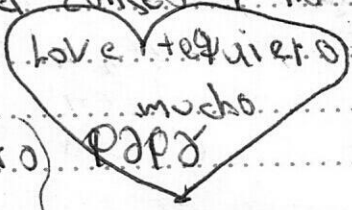 Love tequiero
mucho
papa